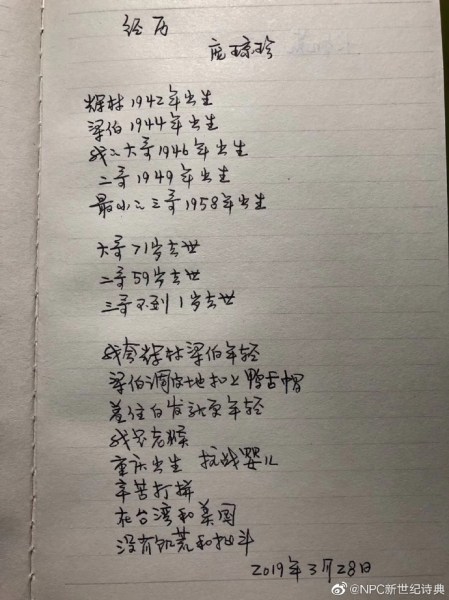 经历
庞琼珍
辉林1942年出生
梁伯1944年出生
我的大哥1946年出生
二哥1949年出生
最小的三哥1958年出生
大哥71岁去世
二哥59岁去世
三哥不到1岁去世
我夸辉林梁伯年轻
梁伯调皮地扣上鸭舌帽
盖住白发就更年轻
我是老猴
重庆出生 抗战婴儿
辛苦打拼
在台湾和美国
没有饥荒和批斗
2019年3月28日
@NPC新世纪诗典